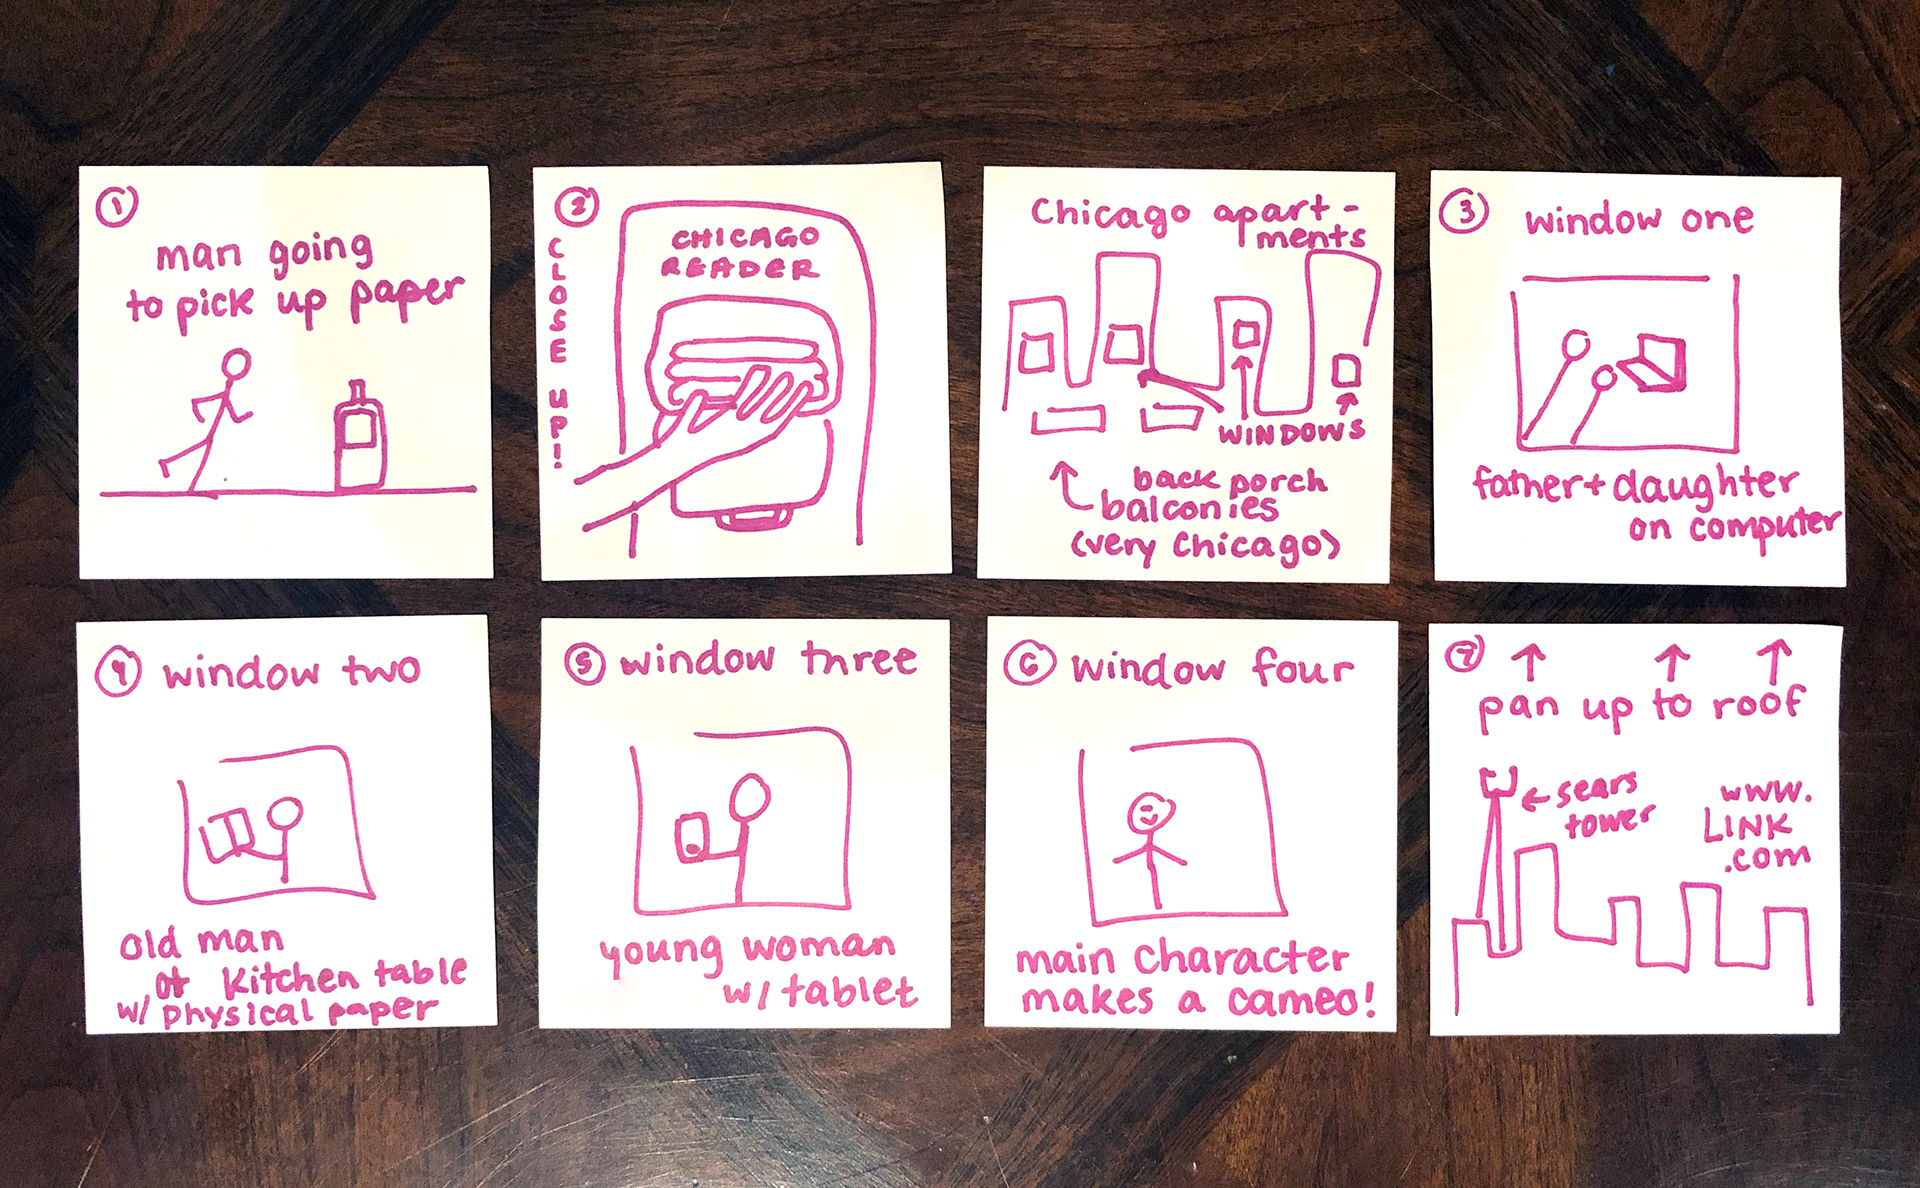 1
man going
to pick up paper
2
CLOSE UP!
CHICAGO
READER
Chicago apart-
ments
WINDOWS
back porch
balconies
(very Chicago)
3
window one
father + daughter
on computer
4
window two
old man
at kitchen table
w/ physical paper
5
window three
young woman
w/ tablet
6
window four
main character
makes a cameo!
7
pan up to roof
sears
tower
www.
LINK
.com